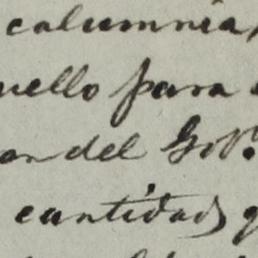 calumnia,
uello para
on del Gob.º
cantidad, q